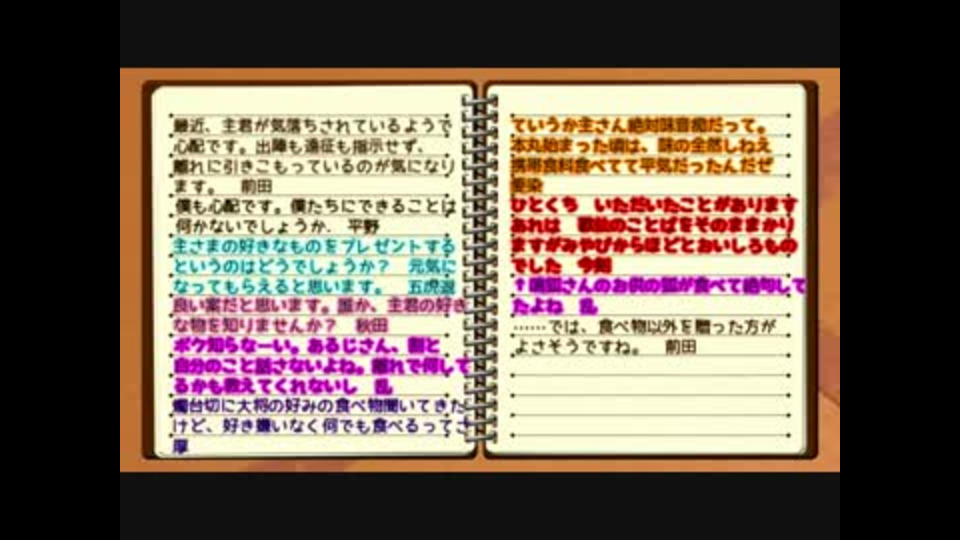 最近、主君が気落ちされているようで
心配です。出陣も遠征も指示せず、
離れに引きこもっているのが気になり
ます。　前田
僕も心配です。僕たちにできることは
何かないでしょうか。平野
主さまの好きなものをプレゼントする
というのはどうでしょうか？　元気に
なってもらえると思います。　五虎退
良い案だと思います。誰か、主君の好き
な物を知りませんか？　秋田
ボク知らなーい。あるじさん、割と
自分のこと話さないよね。離れで何して
るかも教えてくれないし　乱
燭台切に大将の好みの食べ物聞いてきた
けど、好き嫌いなく何でも食べるってさ
厚
ていうか主さん絶対味音痴だって。
本丸始まった頃は、味の全然しねえ
携帯食料食べてて平気だったんだぜ
愛染
ひとくち　いただいたことがあります
あれは　歌仙のことばをそのままかり
ますがみやびからほどとおいしろもの
でした　今剣
↑鳴狐さんのお供の狐が食べて絶句して
たよね　乱
……では、食べ物以外を贈った方が
よさそうですね。　前田